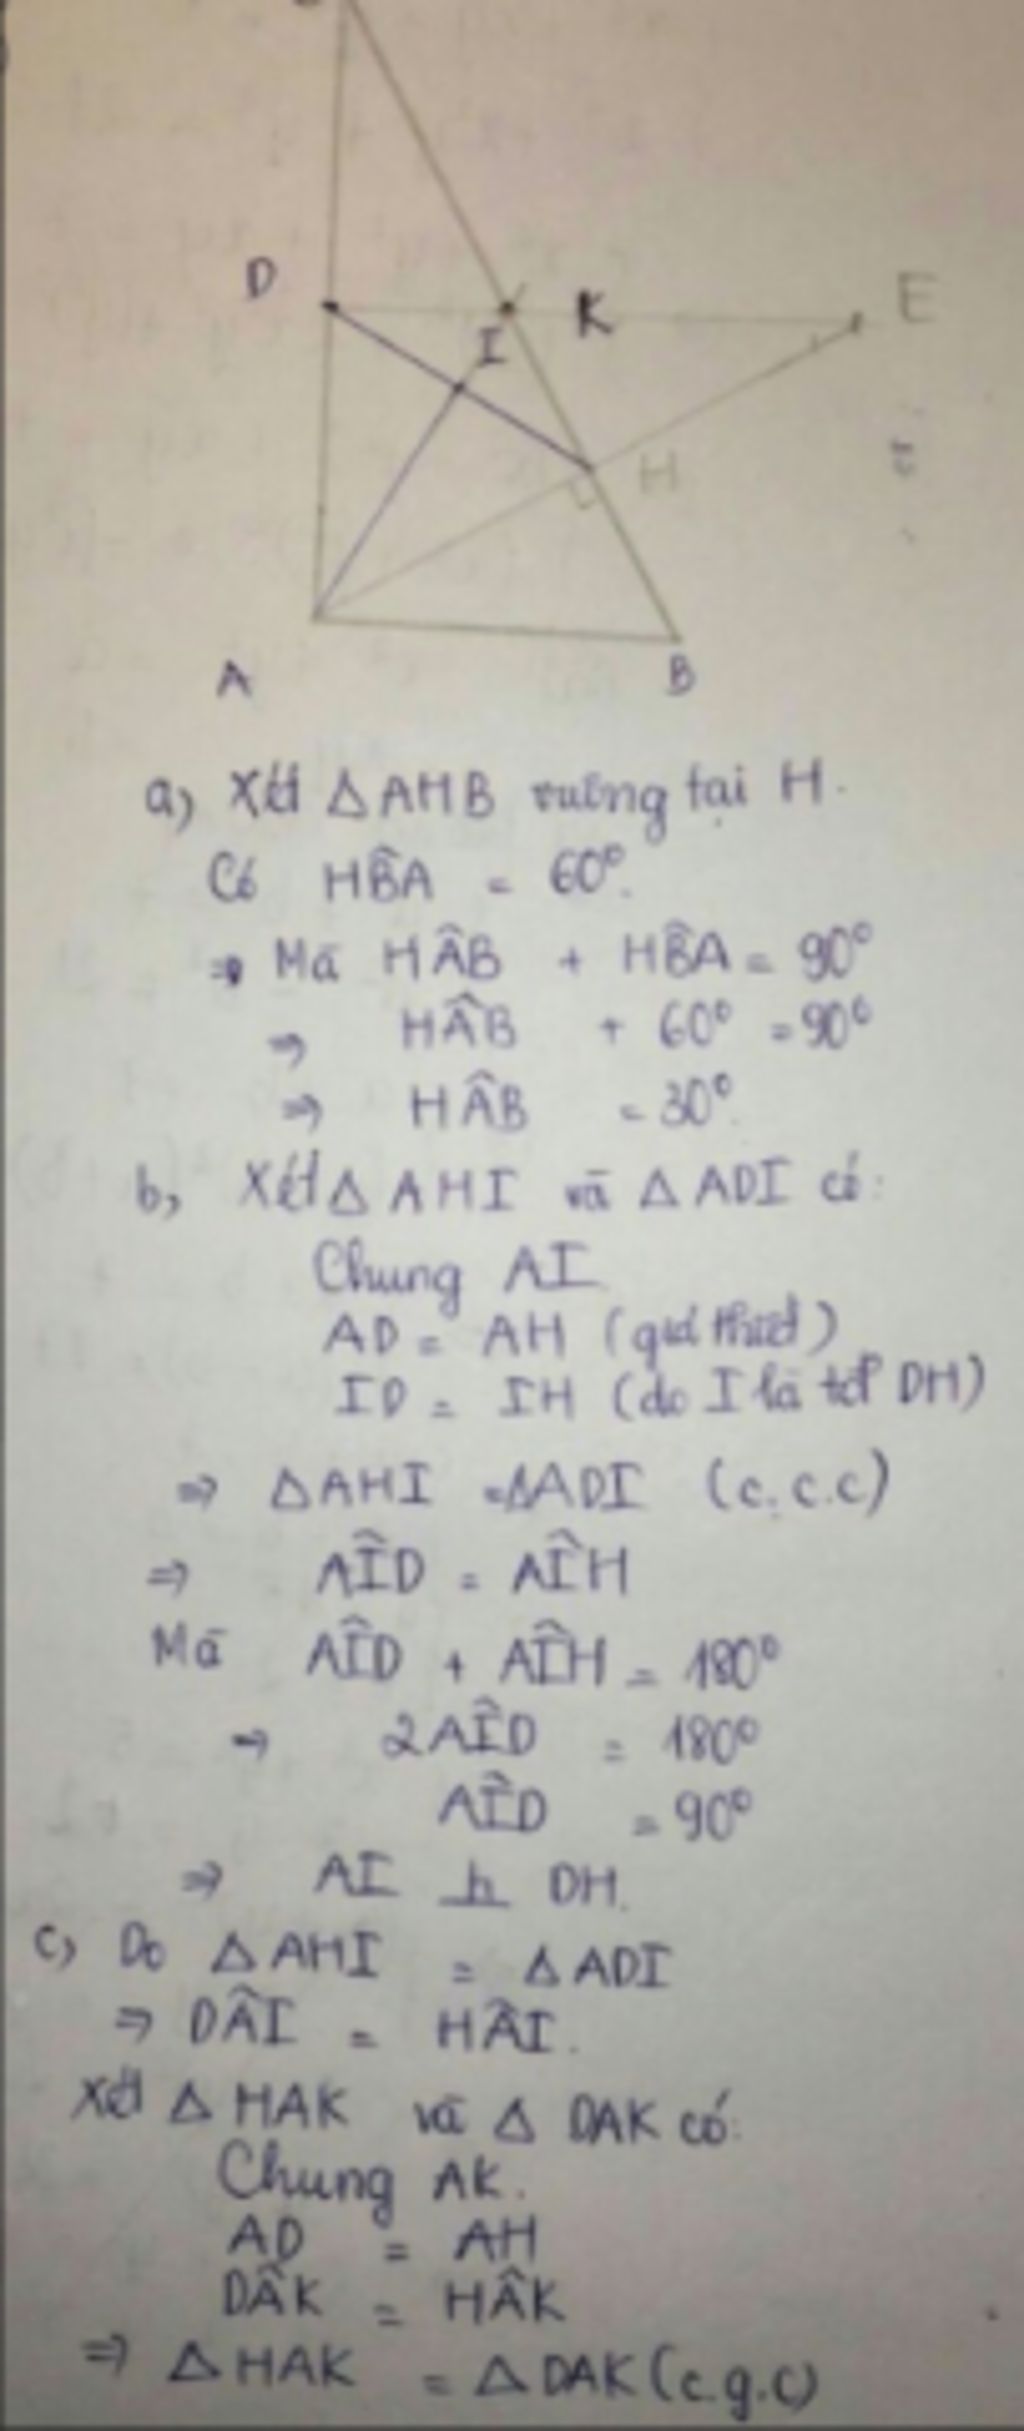 D
I
K
E
H
A
B
a, Xét △ AHB vuông tại H.
Có HB̂A = 60°.
⇒ Mà HÂB + HB̂A = 90°
⇒ HÂB + 60° = 90°
⇒ HÂB = 30°.
b, Xét △ AHI và △ ADI có:
Chung AI
AD = AH (giả thiết)
ID = IH (do I là tđ DH)
⇒ △AHI = △ADI (c.c.c)
⇒ AÎD = AÎH
Mà AÎD + AÎH = 180°
⇒ 2AÎD = 180°
AÎD = 90°
⇒ AI ⊥ DH.
c, Do △ AHI = △ ADI
⇒ DÂI = HÂI.
Xét △ HAK và △ DAK có:
Chung AK.
AD = AH
DÂK = HÂK
⇒ △ HAK = △ DAK (c.g.c)